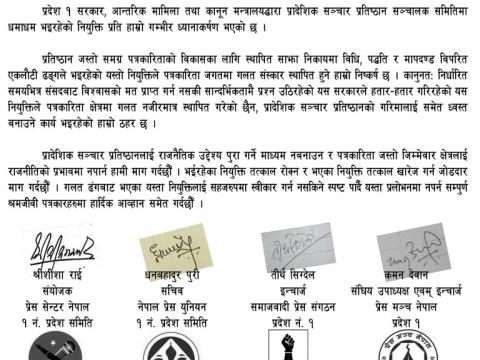 प्रदेश १ सरकार, आन्तरिक मामिला तथा कानून मन्त्रालयद्वारा प्रादेशिक सञ्चार प्रतिष्ठान सञ्चालक समितिमा
धमाधम भइरहेको नियुक्ति प्रति हाम्रो गम्भीर ध्यानाकर्षण भएको छ ।
प्रतिष्ठान जस्तो समग्र पत्रकारिताको विकासका लागि स्थापित साझा निकायमा विधि, पद्धति र मापदण्ड विपरित
एकलौटी ढङ्गले भइरहेको यस्तो नियुक्तिले पत्रकारिता जगतमा गलत संस्कार स्थापित हुने हाम्रो निष्कर्ष छ । कानुनतः निर्धारित
समयभित्र संसदबाट विश्वासको मत प्राप्त गर्न नसकी सान्दर्भिकतामै प्रश्न उठिरहेको यस सरकारले हतार-हतार गरिरहेको यस
नियुक्तिले पत्रकारिता क्षेत्रमा गलत नजीरमात्र स्थापित गरेको छैन, प्रादेशिक सञ्चार प्रतिष्ठानको गरिमालाई समेत ध्वस्त
बनाउने कार्य भइरहेको हाम्रो ठहर छ ।
प्रादेशिक सञ्चार प्रतिष्ठानलाई राजनैतिक उद्देश्य पुरा गर्ने माध्यम नबनाउन र पत्रकारिता जस्तो जिम्मेवार क्षेत्रलाई
राजनीतिको प्रभावमा नपार्न हामी माग गर्दछौँ । भईरहेका नियुक्ति तत्काल रोक्न र भएका नियुक्ति तत्काल खारेज गर्न जोडदार
माग गर्दछौँ । गलत ढंगबाट भएका यस्ता नियुक्तिलाई सहजरुपमा स्वीकार गर्न नसकिने स्पष्ट पार्दै यस्ता प्रलोभनमा नपर्न सम्पुर्ण
श्रमजीवी पत्रकारहरुमा हार्दिक आव्हान समेत गर्दछौँ ।
श्रीशीशा राई धनवहादुर पुरी तीर्थ सिग्देल कमन देवान
संयोजक सचिव इन्चार्ज संघिय उपाध्यक्ष एवम् इन्चार्ज
प्रेस सेन्टर नेपाल नेपाल प्रेस युनियन समाजवादी प्रेस संगठन प्रेस मञ्च नेपाल
१ नं. प्रदेश समिति १ नं. प्रदेश समिति प्रदेश नं. १ प्रदेश १
प्रेस मञ्च नेपाल